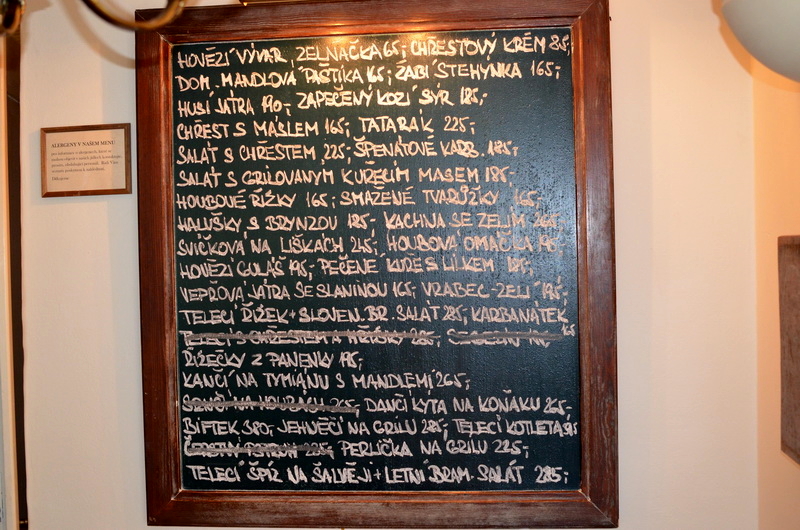 HOVĚZÍ VÝVAR, ZELNAČKA 65,- CHŘESTOVÝ KRÉM 85,-
DOM. MANDLOVÁ PAŠTIKA 165,- ŽABÍ STEHÝNKA 165,-
HUSÍ JÁTRA 190,- ZAPEČENÝ KOZÍ SÝR 185,-
CHŘEST S MÁSLEM 165,- TATARÁK 225,-
SALÁT S CHŘESTEM 225,- ŠPENÁTOVÉ KARB. 185,-
SALÁT S GRILOVANÝM KUŘECÍM MASEM 185,-
HOUBOVÉ ŘÍZKY 165,- SMAŽENÉ TVARŮŽKY 165,-
HALUŠKY S BRYNZOU 185,- KACHNA SE ZELÍM 265,-
SVÍČKOVÁ NA LIŠKÁCH 245,- HOUBOVÁ OMÁČKA 195,-
HOVĚZÍ GULÁŠ 195,- PEČENÉ KUŘE S LILKEM 185,-
VEPŘOVÁ JÁTRA SE SLANINOU 165,- VRABEC-ZELÍ 195,-
TELECÍ ŘÍZEK + SLOVEN. BR. SALÁT 285,- KARBANÁTEK 165
TELECÍ S CHŘESTEM A HŘÍBKY 285,-
ŘÍZEČKY Z PANENKY 195,-
KANČÍ NA TYMIÁNU S MANDLEMI 265,-
SRNČÍ NA HOUBÁCH 265,- DANČÍ KÝTA NA KOŇAKU 265,-
BIFTEK 380,- JEHNĚČÍ NA GRILU 285,- TELECÍ KOTLETA
ČERSTVÝ PSTRUH 225,- PERLIČKA NA GRILU 225,-
TELECÍ ŠPÍZ NA ŠALVĚJI + LETNÍ BRAM. SALÁT 285,-
ALERGENY V NAŠEM MENU